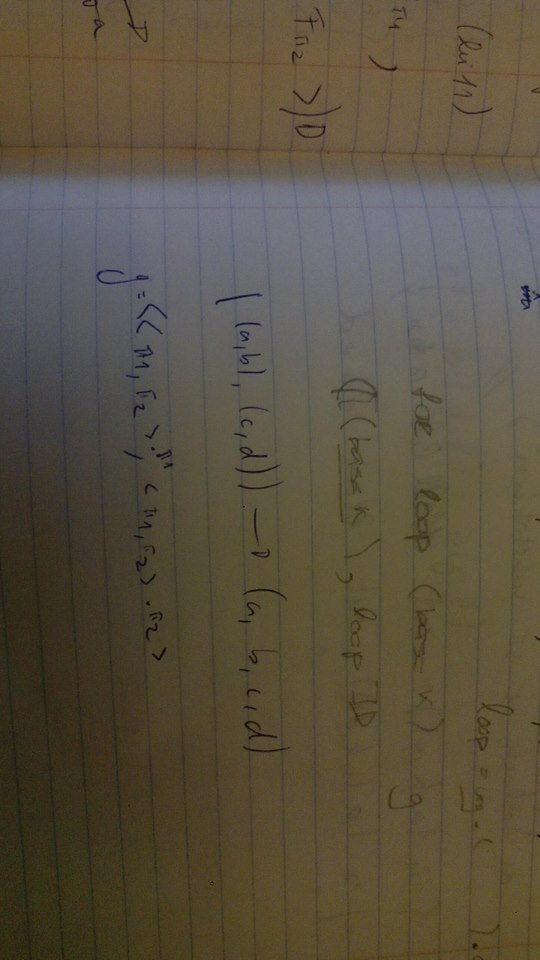 (lei 11)
π1 ,
Fπ2 >) D
loop = ( ) .
for loop (base K) g
(base K), loop ID
((a,b), (c,d)) → (a, b, c, d)
g = <<π1, π2> . π1, <π1, π2> . π2>
a